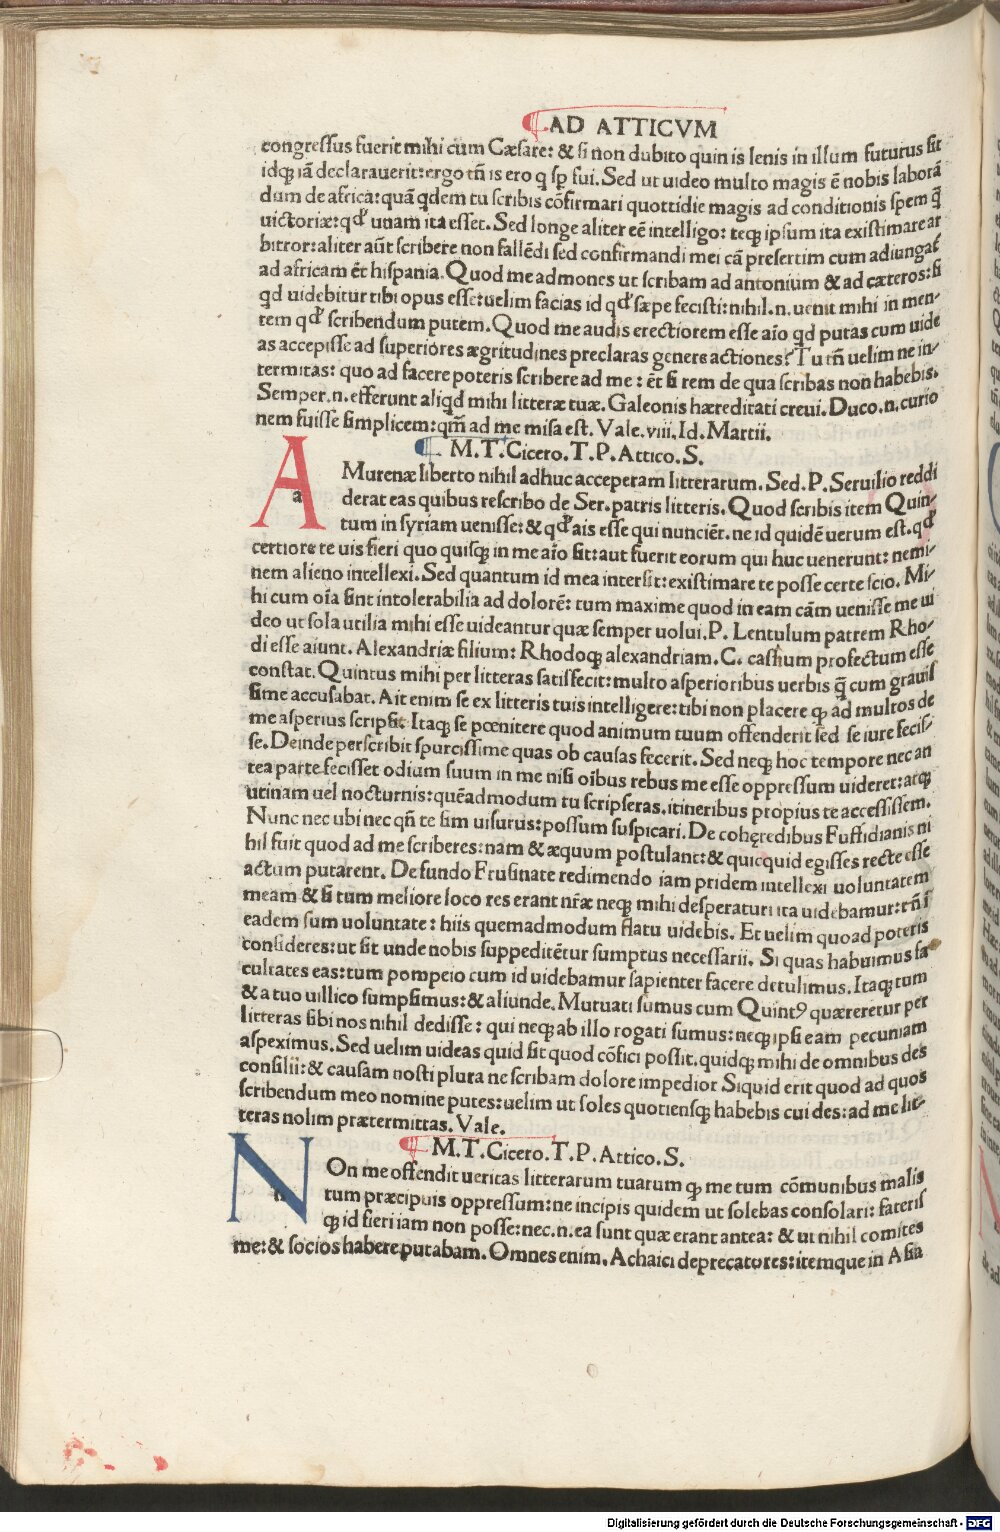 AD ATTICVM
congressus fuerit mihi cum Cæsare: & si non dubito quin is lenis in illum futurus sit
idqꝫ iā declarauerit: ergo tñ is ero q sꝑ fui. Sed ut uideo multo magis ē nobis laborā
dum de africa: quā qdem tu scribis cōfirmari quottidie magis ad conditionis spem q̄
uictoriæ: qđ utinam ita esset. Sed longe aliter eē intelligo: teqꝫ ipsum ita existimare ar
bitror: aliter aūt scribere non fallēdi sed confirmandi mei cā presertim cum adiungat̄
ad africam ēt hispania. Quod me admones ut scribam ad antonium & ad cæteros: si
qd uidebitur tibi opus esse: uelim facias id qđ sæpe fecisti: nihil .n. uenit mihi in men-
tem qđ scribendum putem. Quod me audis erectiorem esse aīo qd putas cum uide
as accepisse ad superiores ægritudines preclaras genere actiones? Tu tñ uelim ne in-
termitas: quo ad facere poteris scribere ad me: ēt si rem de qua scribas non habebis.
Semper .n. efferunt aliqd mihi litteræ tuæ. Galeonis hæreditati creui. Duco .n. curio
nem fuisse simplicem: qm̄ ad me misa est. Vale. viii. Id. Martii.
M. T. Cicero. T. P. Attico. S.
A Murenæ liberto nihil adhuc acceperam litterarum. Sed. P. Seruilio reddi
a derat eas quibus rescribo de Ser. patris litteris. Quod scribis item Quin-
tum in syriam uenisse: & qđ ais esse qui nunciēt. ne id quidē uerum est. qđ
certiorē te uis fieri quo quisqꝫ in me aīo sit: aut fuerit eorum qui huc uenerunt: nemi-
nem alieno intellexi. Sed quantum id mea intersit: existimare te posse certe scio. Mi-
hi cum oīa sint intolerabilia ad dolorē: tum maxime quod in eam cām uenisse me ui
deo ut sola utilia mihi esse uideantur quæ semper uolui. P. Lentulum patrem Rho-
di esse aiunt. Alexandriæ filium: Rhodoqꝫ alexandriam. C. cassium profectum esse
constat. Quintus mihi per litteras satisfecit: multo asperioribus uerbis q̄ cum grauis
sime accusabat. Ait enim se ex litteris tuis intelligere: tibi non placere qꝫ ad multos de
me asperius scripsit. Itaqꝫ se pœnitere quod animum tuum offenderit sed se iure fecis-
se. Deinde perscribit spurcissime quas ob causas fecerit. Sed neqꝫ hoc tempore nec an
tea parte fecisset odium suum in me nisi oībus rebus me esse oppressum uideret: atqꝫ
utinam uel nocturnis: quēadmodum tu scripseras. itineribus propius te accessissem.
Nunc nec ubi nec qñ te sim uisurus: possum suspicari. De cohęredibus Fuffidianis ni
hil fuit quod ad me scriberes: nam & æquum postulant: & quicquid egisses recte esse
actum putarent. De fundo Frusinate redimendo iam pridem intellexi uoluntatem
meam & si tum meliore loco res erant nr̄æ neqꝫ mihi desperaturi ita uidebamur: tñ ī
eadem sum uoluntate: hiis quemadmodum flatu uidebis. Et uelim quoad poteris
consideres: ut sit unde nobis suppeditētur sumptus necessarii. Si quas habuimus fa
cultates eas: tum pompeio cum id uidebamur sapienter facere detulimus. Itaqꝫ tum
& a tuo uillico sumpsimus: & aliunde. Mutuati sumus cum Quintꝰ quæreretur per
litteras sibi nos nihil dedisse: qui neqꝫ ab illo rogati sumus: neqꝫ ipsi eam pecuniam
aspeximus. Sed uelim uideas quid sit quod cōfici possit. quidqꝫ mihi de omnibus des
consilii: & causam nosti plura ne scribam dolore impedior Siquid erit quod ad quos
scribendum meo nomine putes: uelim ut soles quotiensqꝫ habebis cui des: ad me lit-
teras nolim prætermittas. Vale.
M. T. Cicero. T. P. Attico. S.
N On me offendit ueritas litterarum tuarum qꝫ me tum cōmunibus malis
n tum præcipuis oppressum: ne incipis quidem ut solebas consolari: fateris
qꝫ id fieri iam non posse: nec .n. ea sunt quæ erant antea: & ut nihil comites
me: & socios habere putabam. Omnes enim. Achaici deprecatores: itemque in Asia
Digitalisierung gefördert durch die Deutsche Forschungsgemeinschaft - DFG